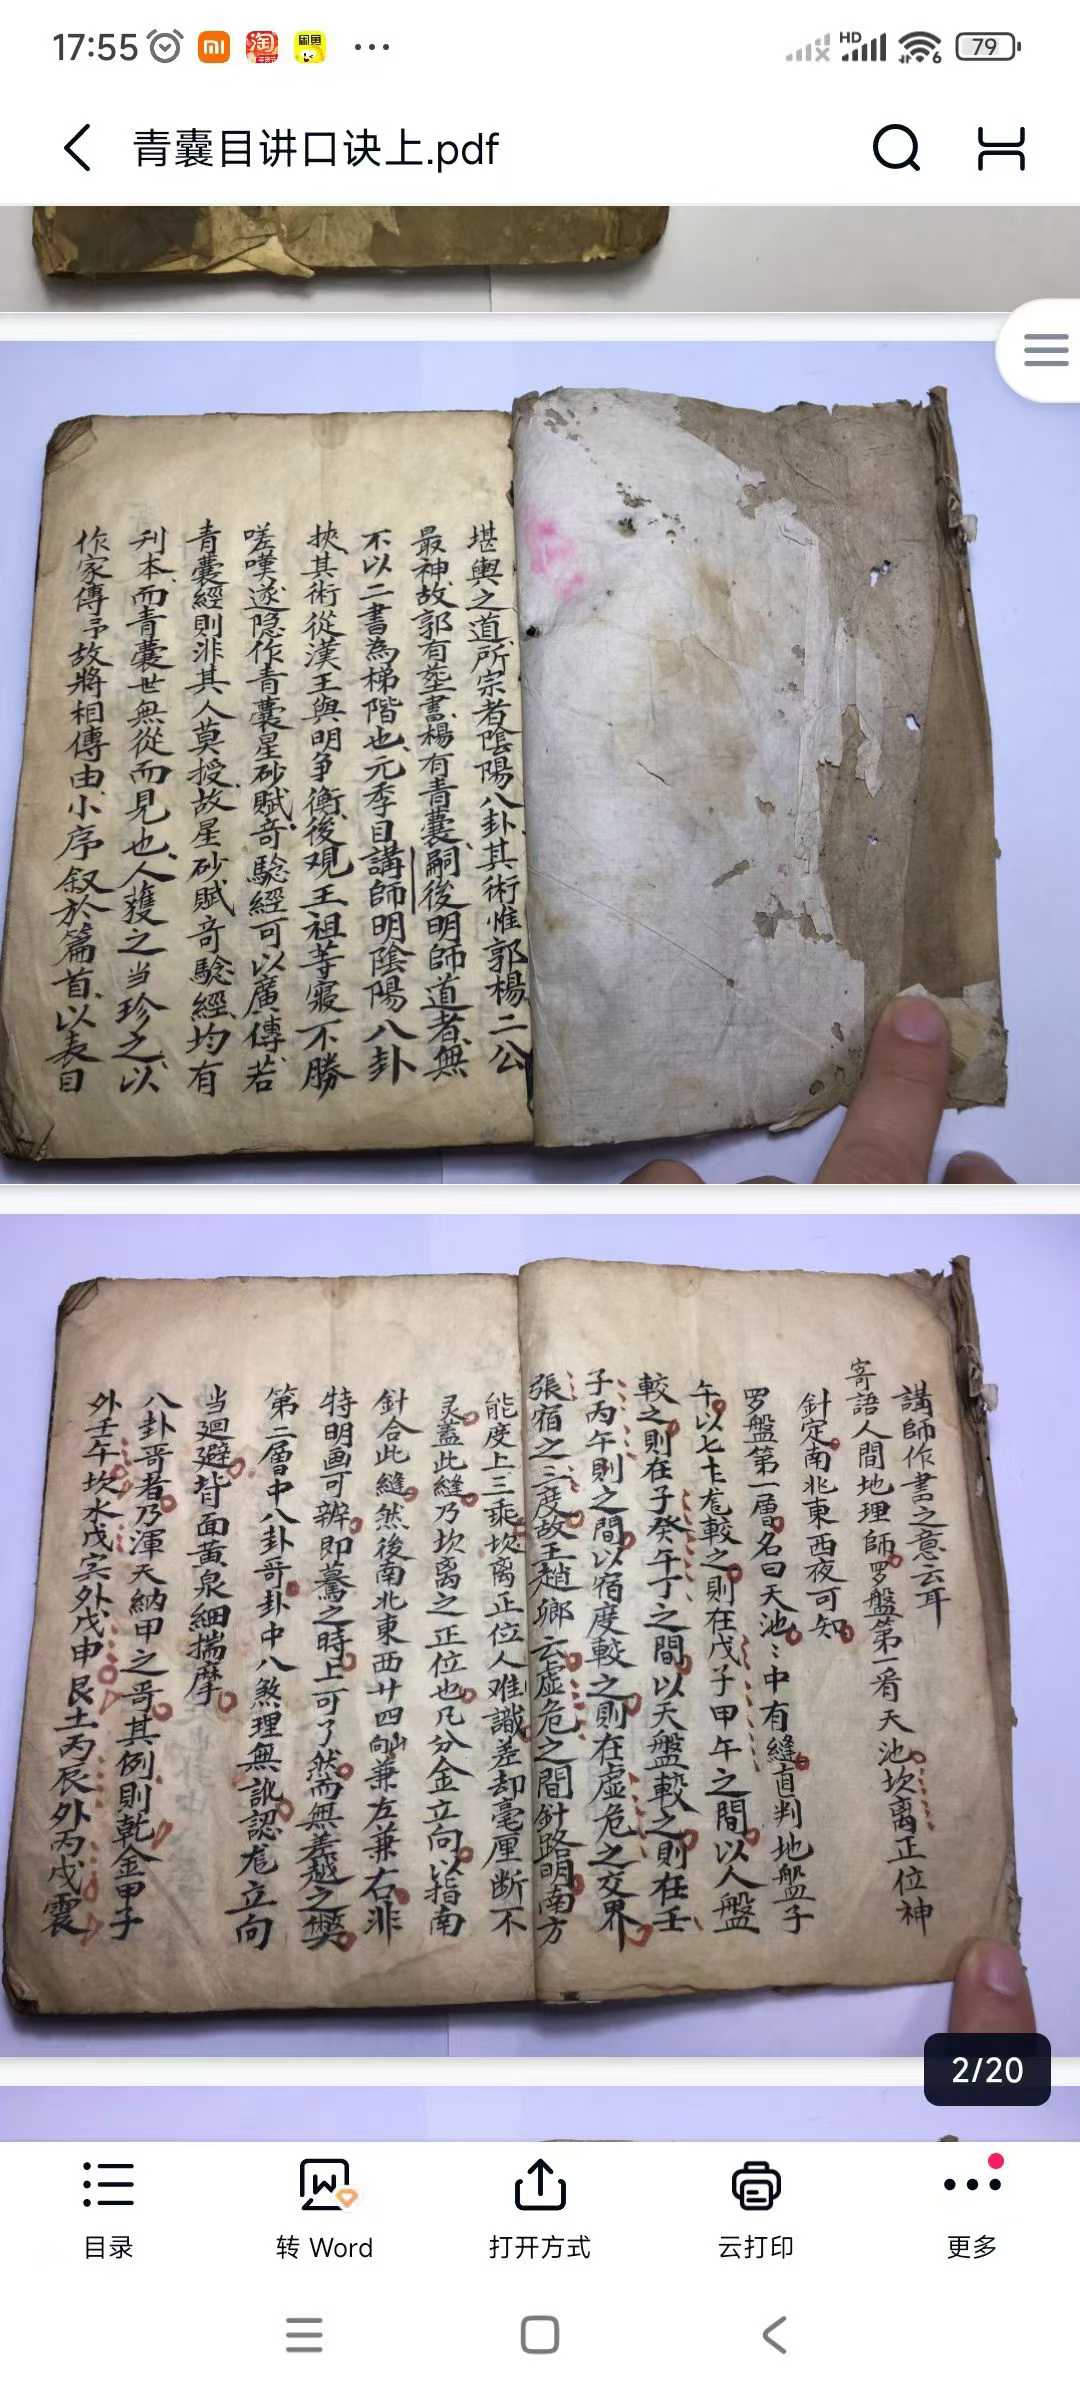 17:55
HD
6
79
青囊目讲口诀上.pdf
堪輿之道所宗者陰陽八卦其術惟郭楊二公
最神故郭有塟書楊有青囊嗣後明師道者無
不以二書為梯階也元季目講師明陰陽八卦
挾其術從漢王與明争衡後观王祖等寢不勝
嗟嘆遂隐作青囊星砂賦竒驗經可以廣傳若
青囊經則非其人莫授故星砂賦竒驗經均有
刋本而青囊世無從而見也人獲之当珍之以
作家傳予故將相傳由小序叙於篇首以表目
講師作書之意云耳
寄語人間地理師罗盤第一看天池坎离正位神
針定南北東西夜可知
罗盤第一層名曰天池〻中有縫直判地盤子
午以七十龙較之則在戊子甲午之間以人盤
較之則在子癸午丁之間以天盤較之則在壬
子丙午則之間以宿度較之則在虚危之交界
張宿之三度故王趙鄉云虚危之間針路明南方
張度上三乘坎离正位人难識差却毫厘断不
灵蓋此縫乃坎离之正位也凡分金立向以指南
針合此縫然後南北東西廿四向兼左兼右非
特明画可辨即驀之時上可了然而無差越之獘
第二層中八卦哥卦中八煞理無訛認龙立向
当廻避背面黄泉細揣摩
八卦哥者乃渾天納甲之哥其例則乾金甲子
外壬午坎水戊寅外戊申艮土丙辰外丙戌震
2/20
目录
转 Word
打开方式
云打印
更多